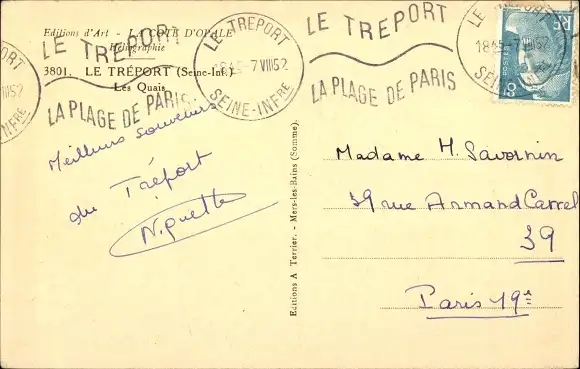 Editions d'Art - LA CÔTE D'OPALE
Héliographie
3801. LE TRÉPORT (Seine-Inf.)
Les Quais
LE TREPORT
LA PLAGE DE PARIS
LE TREPORT
1845-7 VIII52
SEINE-INFRE
LE TREPORT
LA PLAGE DE PARIS
LE TREPORT
1845-7 VIII52
SEINE-INFRE
Meilleurs souvenirs
du Tréport
Editions A Terrier. - Mers-les-Bains (Somme).
Madame H. Savornin
39 rue Armand Carrel
39
Paris 19e